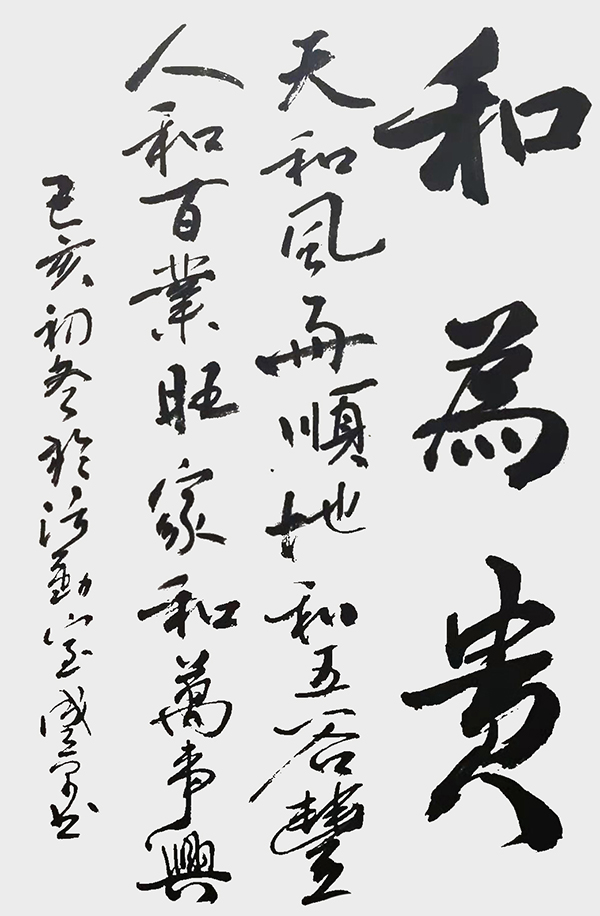 和為貴
天和風雨順地和五谷豐
人和百業旺家和萬事興
己亥初冬於活動室盛书